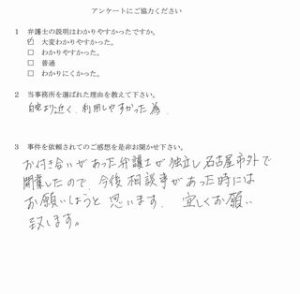 アンケートにご協力ください
1 弁護士の説明はわかりやすかったですか。
☑ 大変わかりやすかった。
□ わかりやすかった。
□ 普通
□ わかりにくかった。
2 当事務所を選ばれた理由を教えて下さい。
自宅より近く、利用しやすかった為
3 事件を依頼されてのご感想を是非お聞かせ下さい。
お付き合いがあった弁護士が独立し名古屋市外で
開業したので、今後相談事があった時には
お願いしようと思います。宜しくお願い
致します。